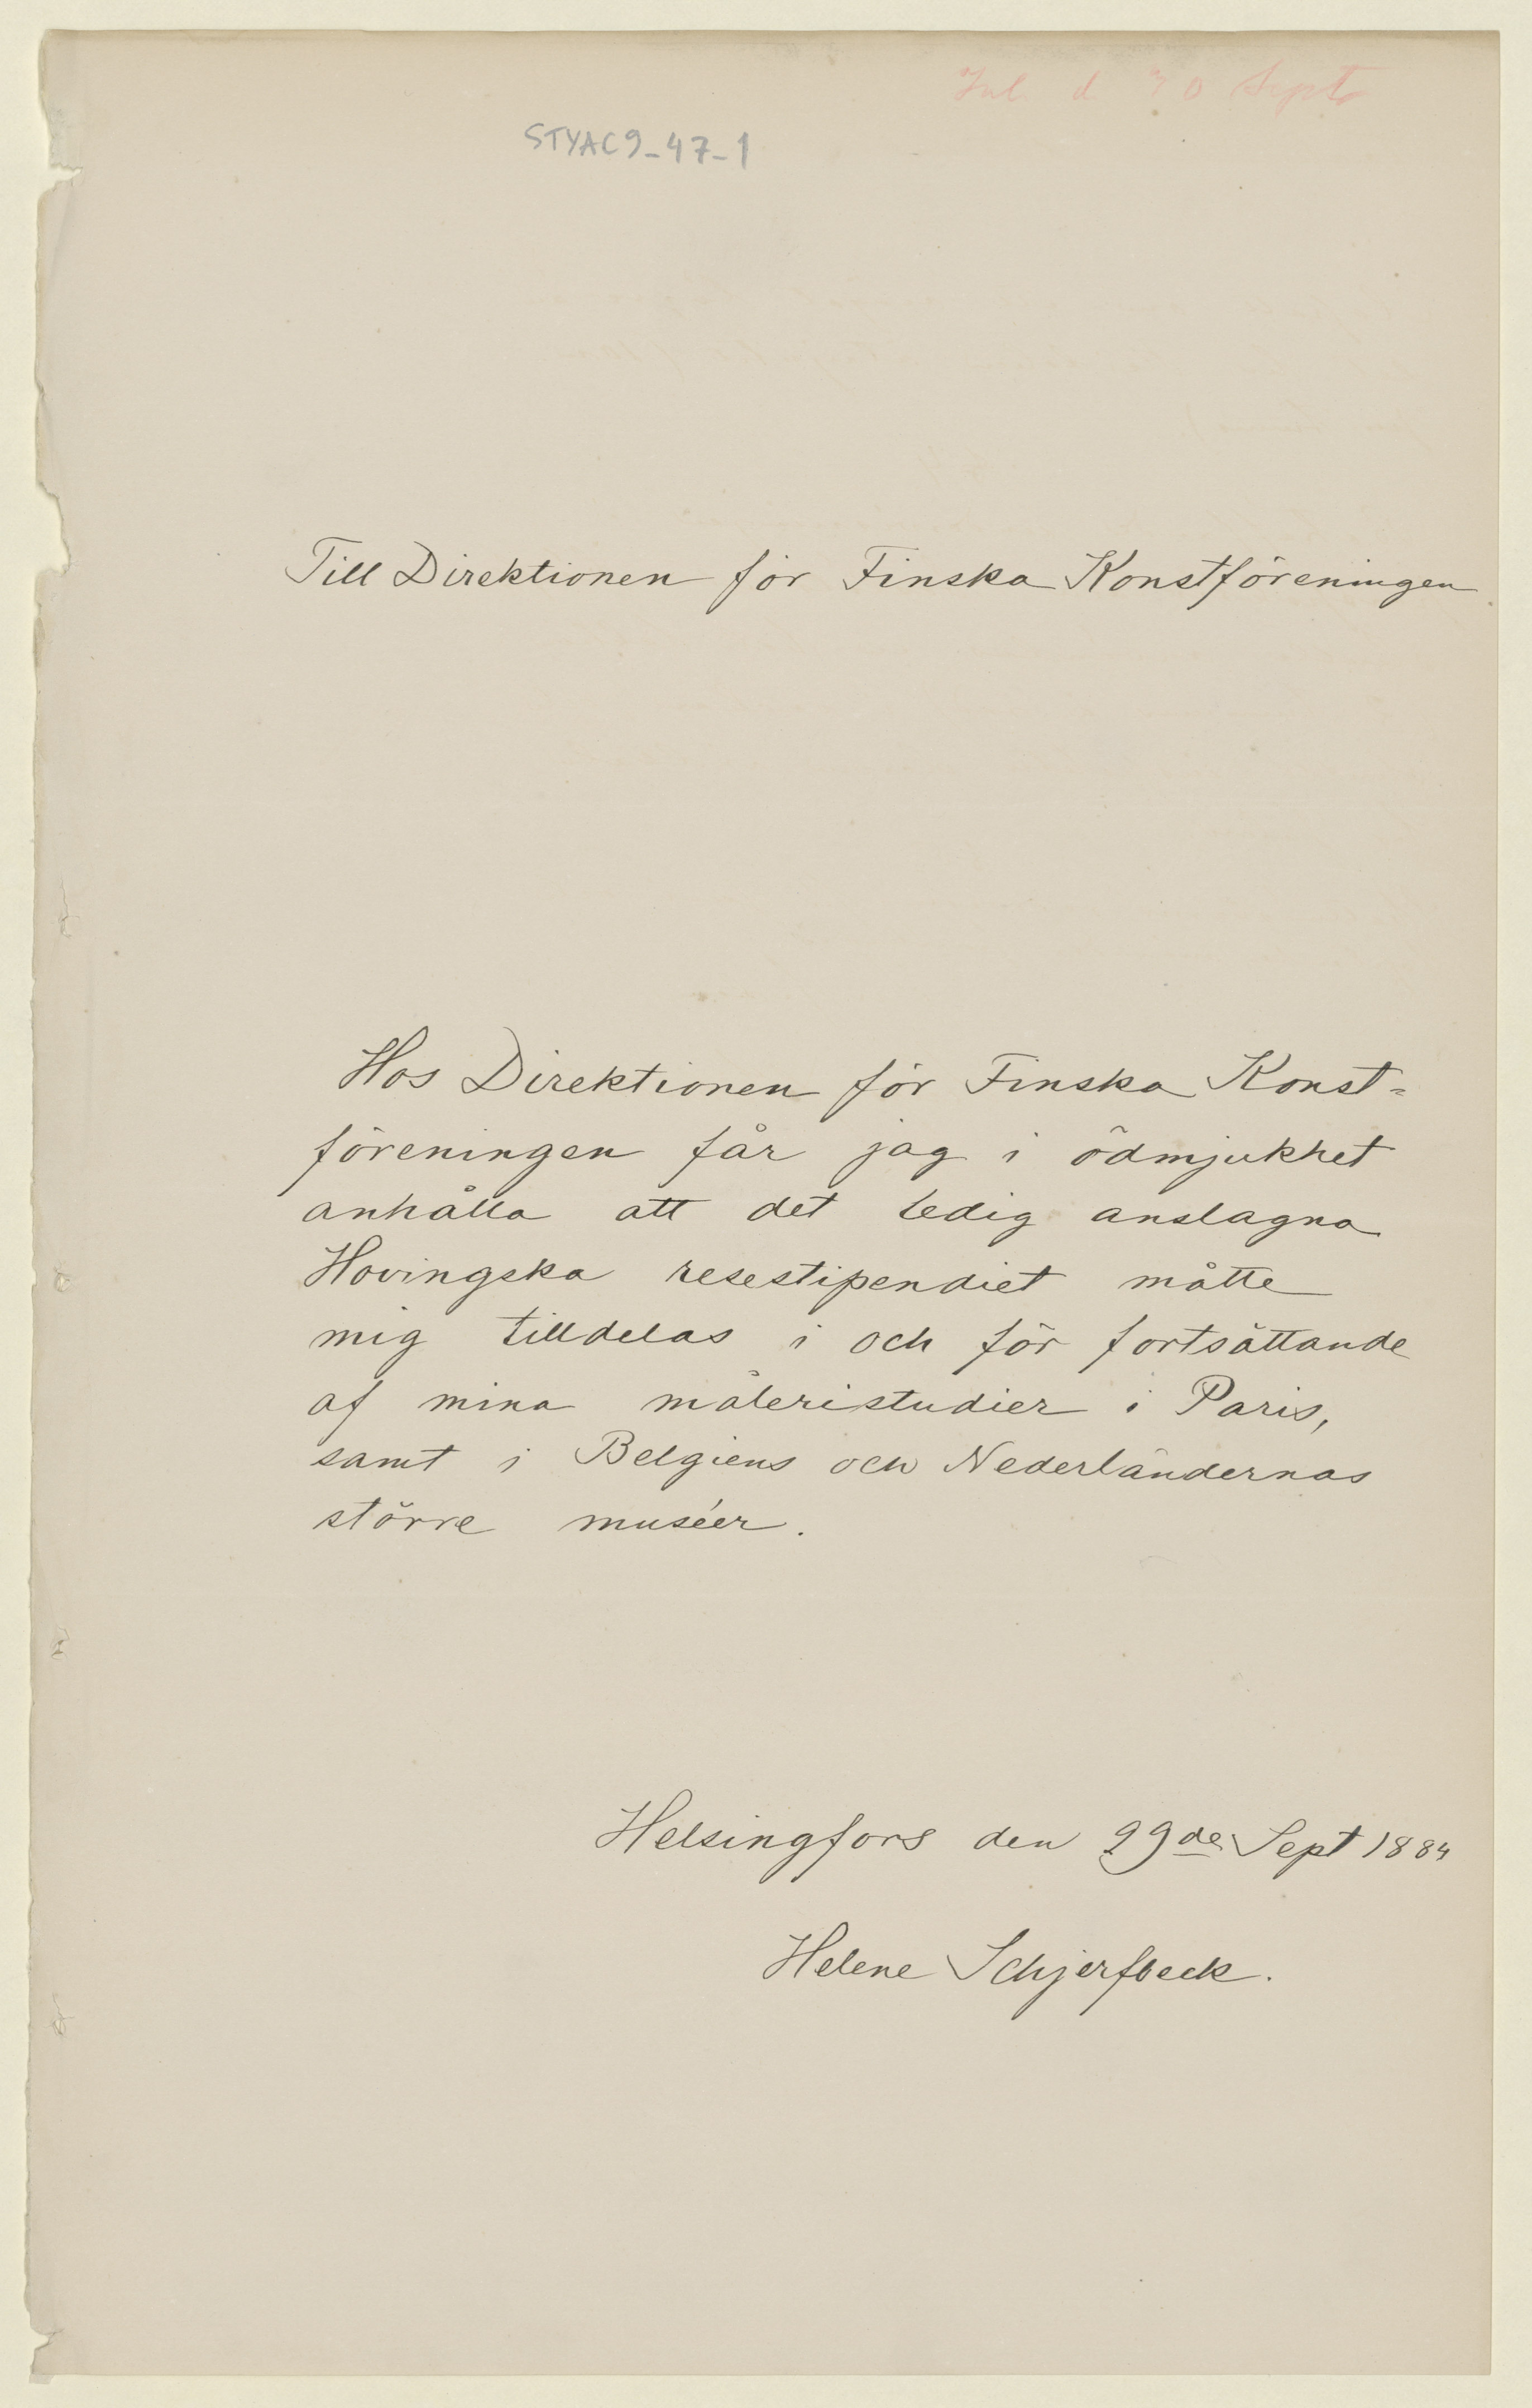 Inl d 30 Sept
STYAC9-47-1
Till Direktionen för Finska Konstföreningen
Hos Direktionen för Finska Konst=
föreningen får jag i ödmjukhet
anhålla att det ledig anslagna
Hovingska resestipendiet måtte
mig tilldelas i och för fortsättande
af mina måleristudier i Paris,
samt i Belgiens och Nederländernas
större muséer.
Helsingfors den 29de Sept 1884
Helene Schjerfbeck.